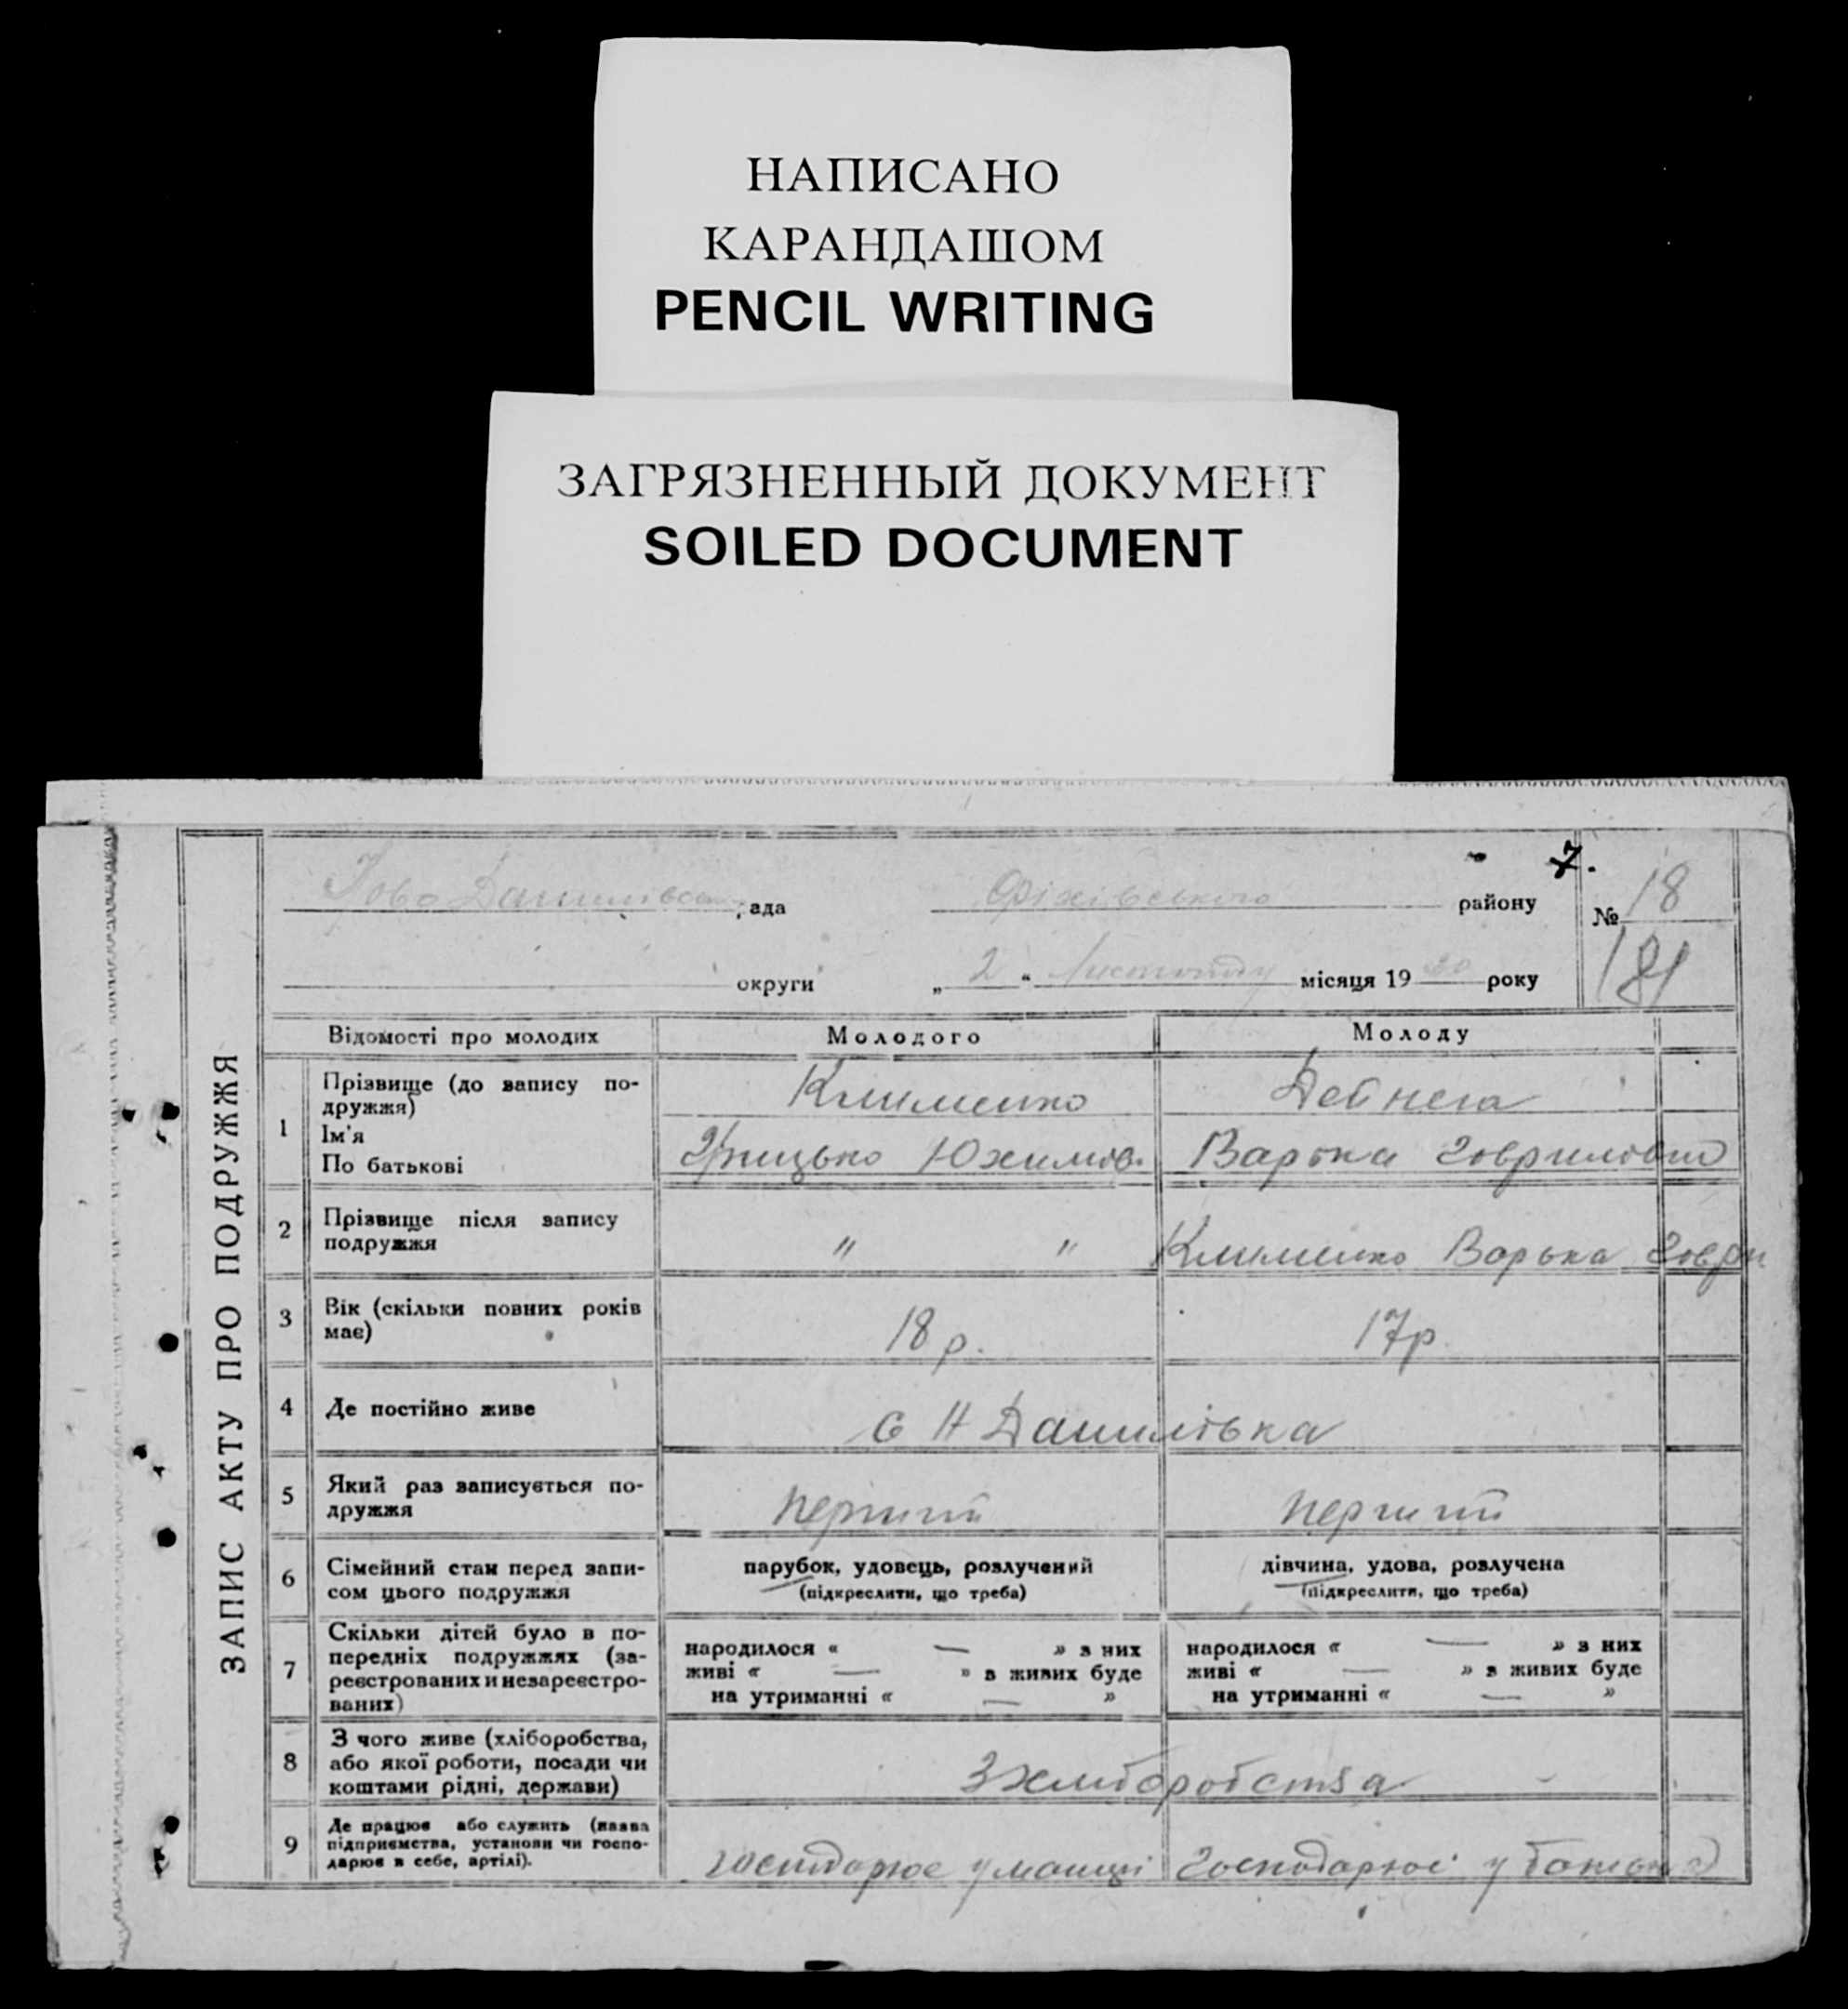 НАПИСАНО
КАРАНДАШОМ
PENCIL WRITING
ЗАГРЯЗНЕННЫЙ ДОКУМЕНТ
SOILED DOCUMENT
ЗАПИС АКТУ ПРО ПОДРУЖЖЯ
7.
рада Оріхівського району № 18
округи „ 2 " Листопаду місяця 19 30 року 181
Відомості про молодих Молодого Молоду
1 Прізвище (до запису по-
дружжя) Клименко Дейнега
Ім'я
По батькові Грицько Юхимов. Варька
2 Прізвище після запису
подружжя " " Клименко Варька Говри
3 Вік (скільки повних років
має) 18 р. 17 р.
4 Де постійно живе С Н Данилівка
5 Який раз записується по-
дружжя перший перший
6 Сімейний стан перед запи-
сом цього подружжя парубок, удовець, розлучений дівчина, удова, розлучена
(підкреслити, що треба) (підкреслити, що треба)
7 Скільки дітей було в по-
передніх подружжях (за-
реєстрованих и незареєстро-
ваних)
народилося « — » з них народилося « — » з них
живі « — » з живих буде живі « — » з живих буде
на утриманні « — » на утриманні « — »
8 З чого живе (хліборобства,
або якої роботи, посади чи
коштами рідні, держави) З хліборобства
9 Де працює або служить (назва
підприємства, установи чи госпо-
дарює в себе, артілі). господарює у господарює у батька